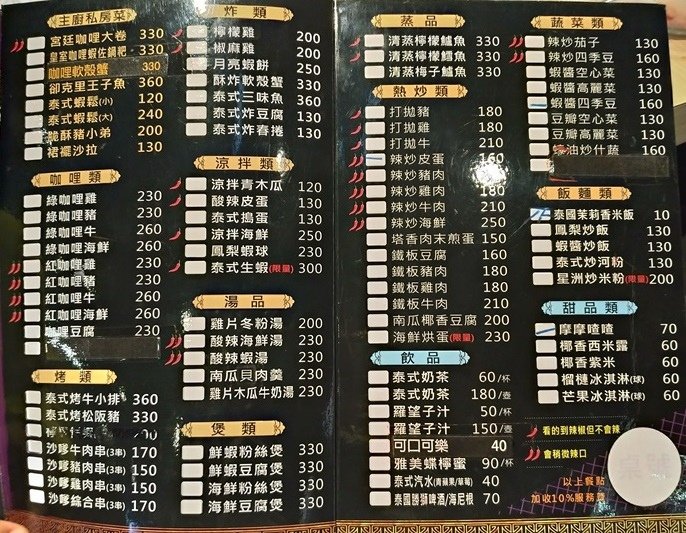 主廚私房菜
宮廷咖哩大卷 330
皇室咖哩蝦佐鍋粑 330
咖哩軟殼蟹 330
卻克里王子魚 360
泰式蝦鬆(小) 120
泰式蝦鬆(大) 240
脆酥豬小弟 200
裙襬沙拉 130
咖哩類
綠咖哩雞 230
綠咖哩豬 230
綠咖哩牛 260
綠咖哩海鮮 260
紅咖哩雞 230
紅咖哩豬 230
紅咖哩牛 260
紅咖哩海鮮 260
咖哩豆腐 230
烤類
泰式烤牛小排 360
泰式烤松阪豬 330
沙嗲牛肉串(3串) 170
沙嗲豬肉串(3串) 150
沙嗲雞肉串(3串) 150
沙嗲綜合串(3串) 170
炸類
檸檬雞 200
椒麻雞 200
月亮蝦餅 250
酥炸軟殼蟹 330
泰式三味魚 360
泰式炸豆腐 130
泰式炸春捲 130
涼拌類
涼拌青木瓜 120
酸辣皮蛋 130
泰式搗蛋 130
涼拌海鮮 250
鳳梨蝦球 230
泰式生蝦(限量) 300
湯品
雞片冬粉湯 200
酸辣海鮮湯 230
酸辣蝦湯 230
南瓜貝肉羹 230
雞片木瓜牛奶湯 230
煲類
鮮蝦粉絲煲 330
鮮蝦豆腐煲 330
海鮮粉絲煲 330
海鮮豆腐煲 330
蒸品
清蒸檸檬鱸魚 330
清蒸檸檬鱈魚 330
清蒸梅子鱸魚 330
熱炒類
打拋豬 180
打拋雞 180
打拋牛 210
辣炒皮蛋 160
辣炒豬肉 180
辣炒雞肉 180
辣炒牛肉 210
辣炒海鮮 250
塔香肉末煎蛋 150
鐵板豆腐 160
鐵板豬肉 180
鐵板雞肉 180
鐵板牛肉 210
南瓜椰香豆腐 200
海鮮烘蛋(限量) 230
飲品
泰式奶茶 60/杯
泰式奶茶 180/壺
羅望子汁 50/杯
羅望子汁 150/壺
可口可樂 40
雅美蝶檸蜜 90/杯
泰式汽水(青蘋果/草莓) 40
泰國勝獅啤酒/海尼根 70
蔬菜類
辣炒茄子 130
辣炒四季豆 160
蝦醬空心菜 130
蝦醬高麗菜 130
蝦醬四季豆 160
豆瓣空心菜 130
豆瓣高麗菜 130
蠔油炒什蔬 160
飯麵類
泰國茉莉香米飯 10
鳳梨炒飯 130
蝦醬炒飯 130
泰式炒河粉 130
星洲炒米粉(限量) 200
甜品類
摩摩喳喳 70
椰香西米露 60
椰香紫米 60
榴槤冰淇淋(球) 60
芒果冰淇淋(球) 60
看的到辣椒但不會辣
會稍微辣口
以上餐點
加收10%服務費
桌號